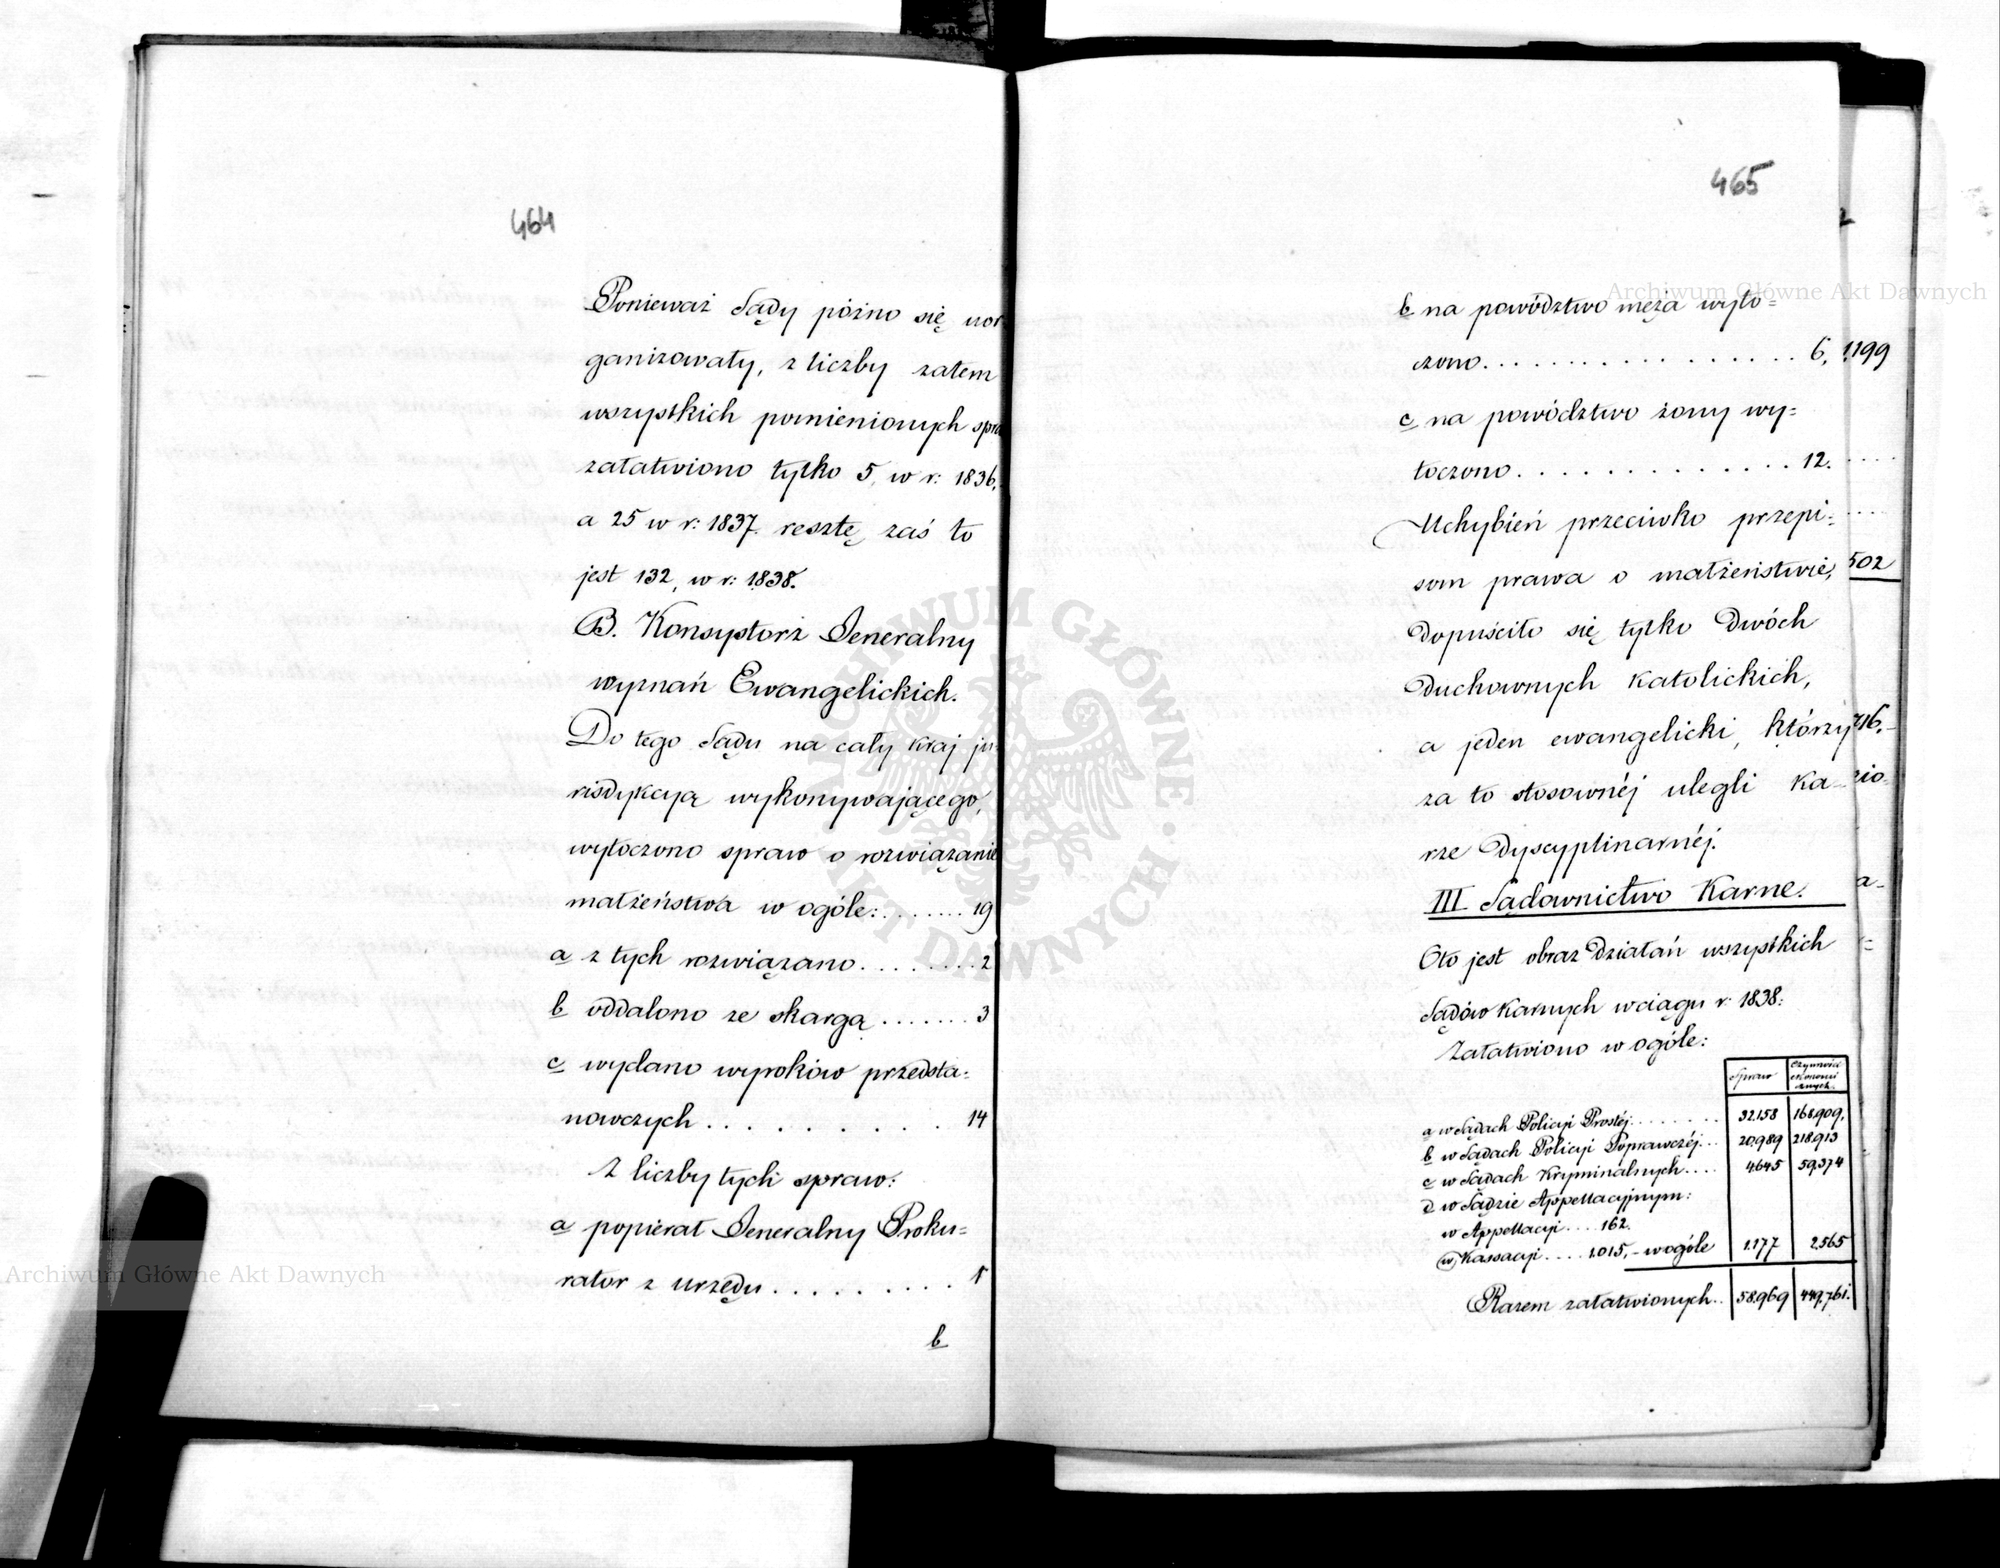 464
Ponieważ Sądy późno się uor
ganizowały, z liczby zatem
wszystkich pomienionych spra
załatwiono tylko 5, w r: 1836,
a 25 w r: 1837. resztę zaś to
jest 132, w r: 1838.
B. Konsystorz Jeneralny
wyznań Ewangelickich.
Do tego Sądu na cały kraj ju
risdykcyą wykonywającego,
wytoczono spraw o rozwiązanie
małżeństwa w ogóle: ........ 19
a z tych rozwiązano ........ 2
b oddalono ze skargą ....... 3
c wydano wyroków przedsta=
nowczych .......... 14
Z liczby tych spraw:
a popierał Jeneralny Proku=
rator z urzędu .......... 1
b
465
b na powództwo męża wyto=
czono ................ 6,
c na powództwo żony wy=
toczono .............. 12.
Uchybień przeciwko przepi=
som prawa o małżeństwie,
dopuściło się tylko dwóch
duchownych katolickich,
a jeden ewangelicki, którzy
za to stosownéj ulegli ka-
rze dyscyplinarnéj.
III Sądownictwo Karne.
Oto jest obraz działań wszystkich
Sądów Karnych w ciągu r: 1838:
Załatwiono w ogóle:
Spraw Czynności ekonomi cznych.
a w Sądach Policyi Prostéj ........ 32158 168,909,
b w Sądach Policyi Poprawczéj ... 20,989 218,913
c w Sądach Kryminalnych .... 4645 59,374
d w Sądzie Appellacyjnym:
w Appellacyi .... 162.
w Kassacyi .... 1015, - w ogóle 1.177 2565
Razem załatwionych .. 58,969 449,761.
1199
502
716.
zio-
a-
Archiwum Główne Akt Dawnych
Archiwum Główne Akt Dawnych
ARCHIWUM GŁÓWNE AKT DAWNYCH